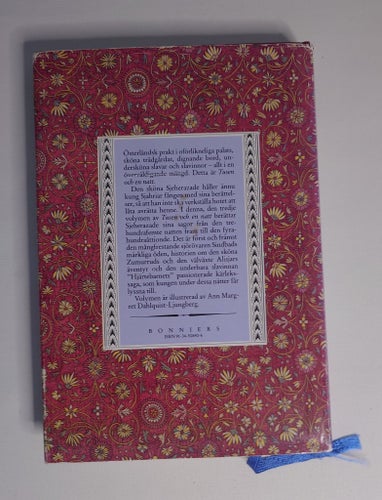 Österländsk prakt i oförlikneliga palats,
sköna trädgårdar, dignande bord, un-
derskóna slavar och slavinnor – allt i en
överväldigande mängd. Detta är Tusen
och en natt.
Den sköna Sjeherazade håller ännu
kung Sjahriar fången med sina berättel-
ser, så att han inte ska verkställa hotet att
låta avrätta henne. I denna, den tredje
volymen av Tusen och en natt berättar
Sjeherazade sina sagor från den tre-
hundrafemte natten fram till den fyra-
hundraåttionde. Det är först och främst
den mångfrestande sjöfararen Sindbads
märkliga öden, historien om den sköna
Zumurruds och den välväxte Alisjars
äventyr och den underbara slavinnan
"Hjärtebarnets" passionerade kärleks-
saga, som kungen under dessa nätter får
lyssna till.
Volymen är illustrerad av Ann Marg-
ret Dahlquist-Ljungberg.
BONNIERS